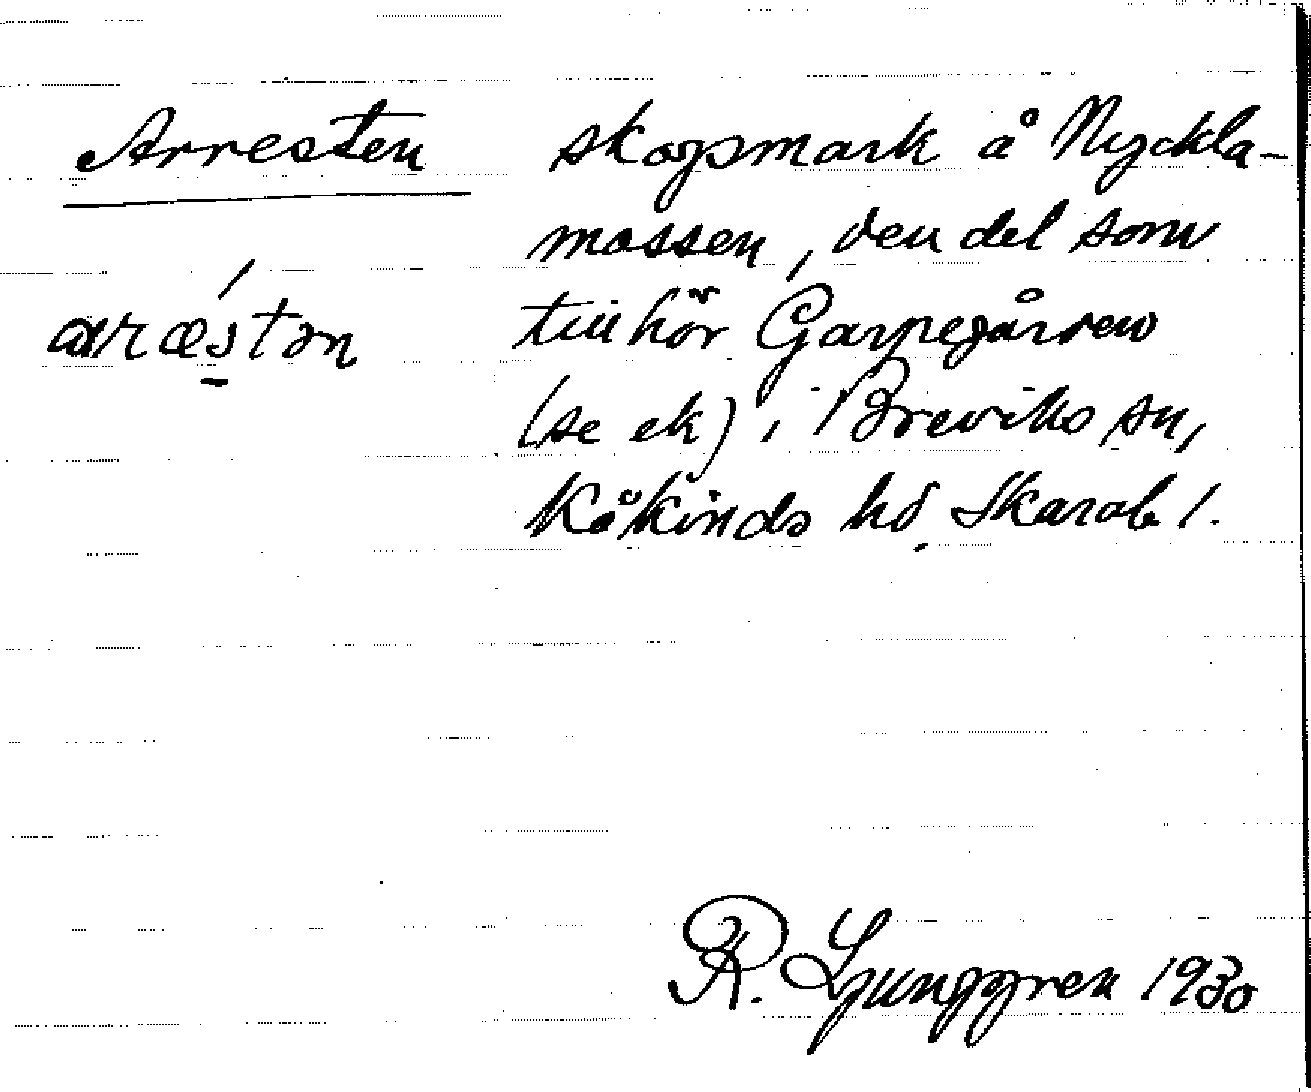 Arresten skogsmark å Nyckla-
mossen, den del som
arǽstən tillhör Garpegården
(se ek) i Breviks sn,
Kåkinds hd Skarab. l.
R. Ljunggren 1930